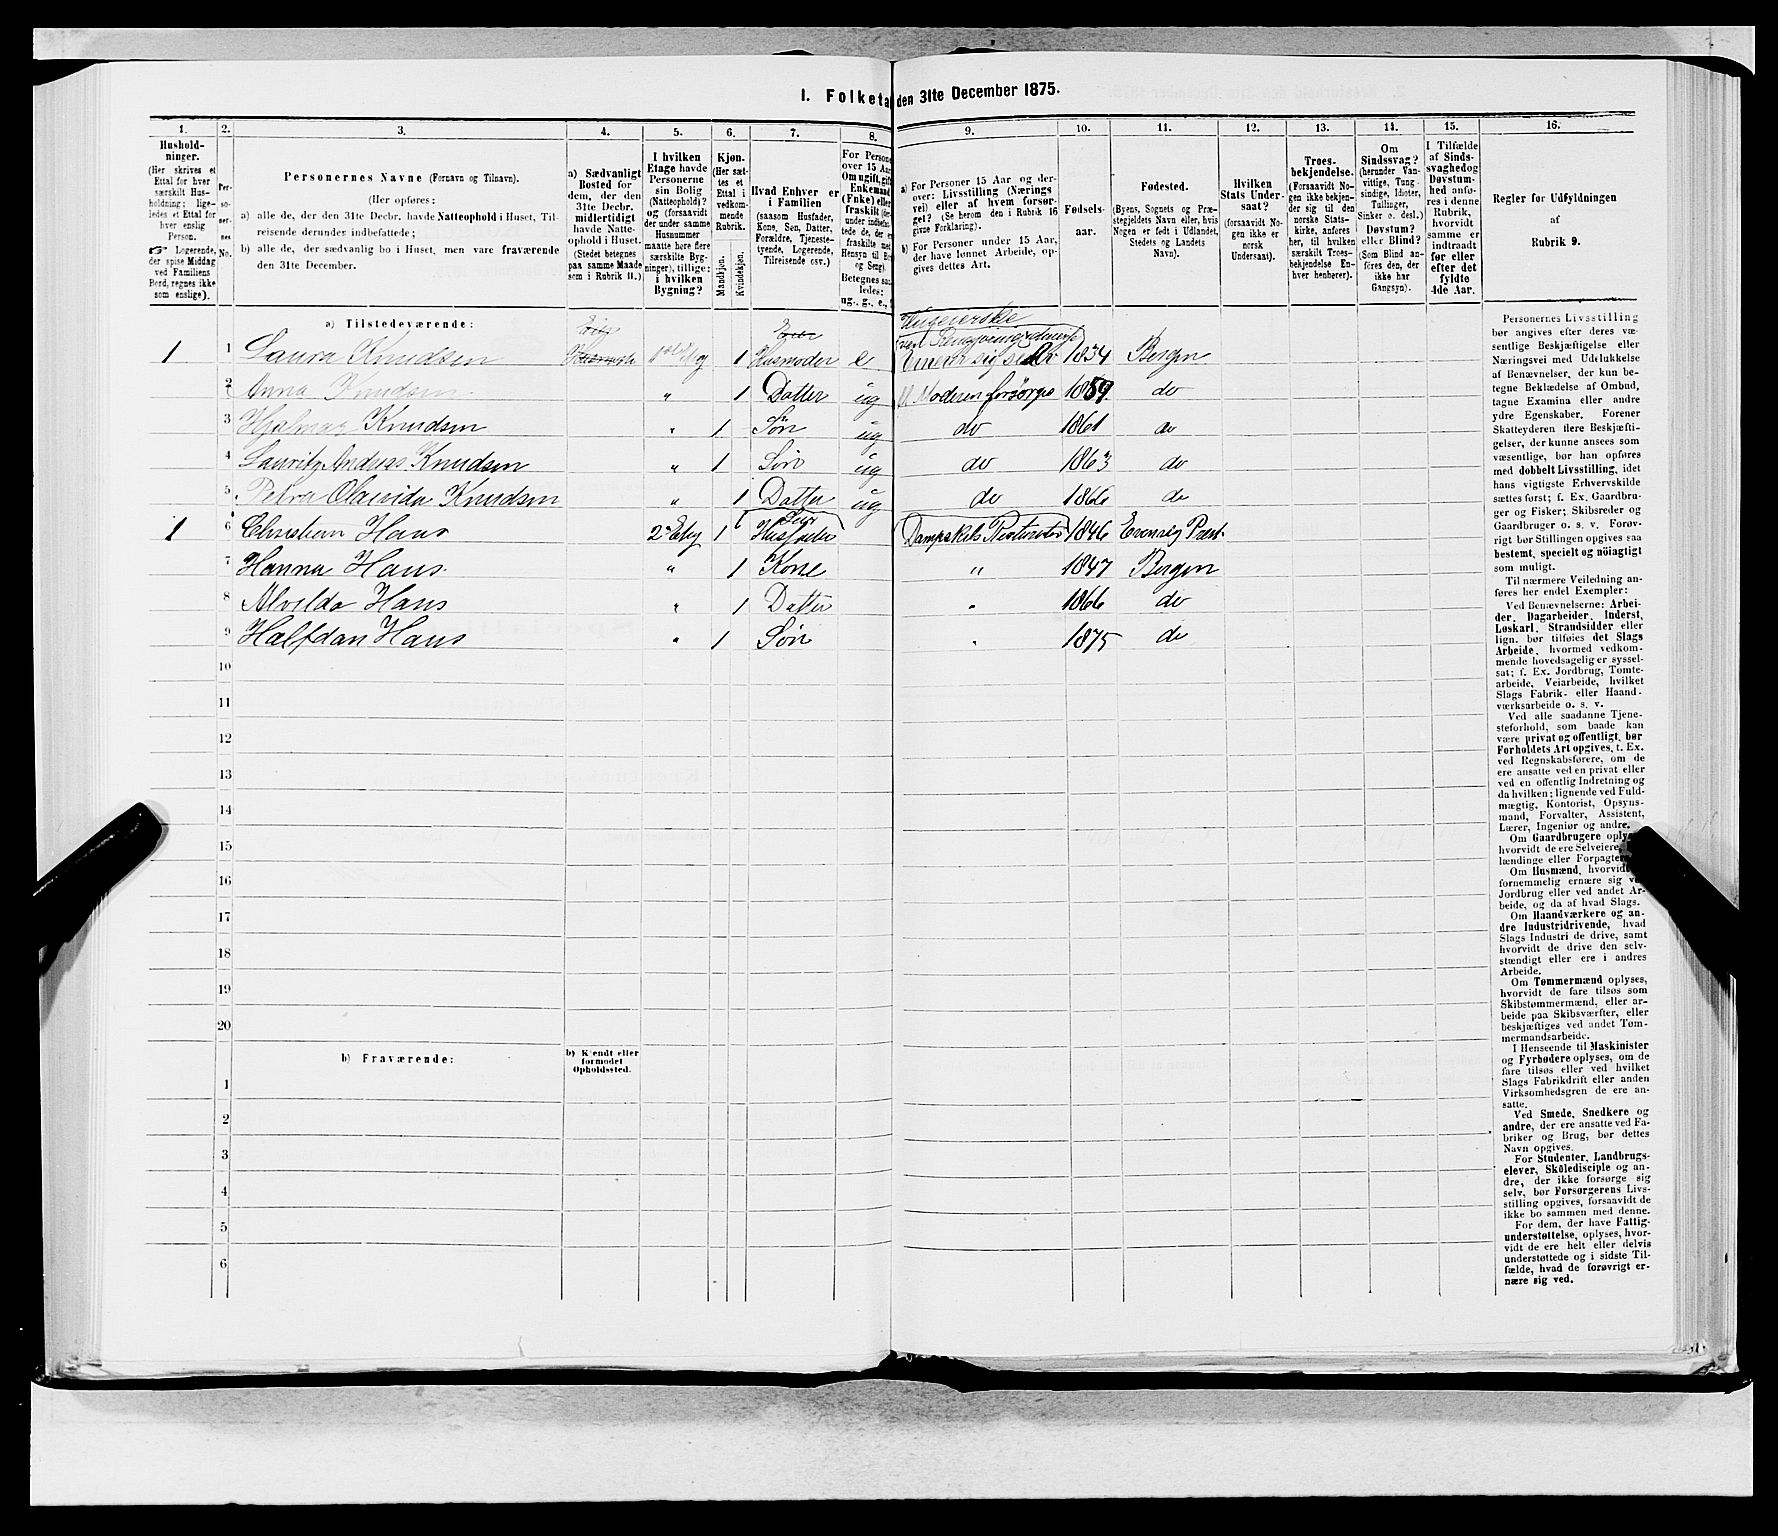 I. Folketa den 31te December 1875.
1. 2. 3. 4. 5. 6. 7. 8. 9. 10. 11. 12. 13. 14. 15. 16.
Hushold-
ninger.
(Her skrives et
Ettal for hver
særskilt Hus-
holdning; lige-
ledes et Ettal for
hver enslig
Person.
☞ Logerende,
der spise Middag
ved Familiens
Bord, regnes ikke
som enslige).
Per-
so-
ner-
nes
No.
Personernes Navne (Fornavn og Tilnavn).
(Her opføres:
a) alle de, der den 31te Decbr. havde Natteophold i Huset, Til-
reisende derunder indbefattede;
b) alle de, der sædvanlig bo i Huset, men vare fraværende
den 31te December.
a) Sædvanligt
Bosted for
dem, der den
31te Decbr.
midlertidigt
havde Natte-
ophold i Huset.
(Stedet betegnes
paa samme Maade
som i Rubrik II.)
I hvilken
Etage havde
Personerne
sin Bolig
(Natteophold)?
og (forsaavidt
der under samme
Husnummer
maatte høre flere
særskilte Byg-
ninger), tillige:
i hvilken
Bygning?
Kjøn.
(Her sæt-
tes et
Ettal i
vedkom-
mende
Rubrik.
Mandkjøn.
Kvindekjøn.
Hvad Enhver er
i Familien
(saasom Husfader,
Kone, Søn, Datter,
Forældre, Tjeneste-
tyende, Logerende,
Tilreisende osv.)
For Persone
over 15 Aar
Om ugift, gift
Enkemand
(Enke) eller
fraskilt
Betegnes saa
ledes:
ug., g., e.,
a) For Personer 15 Aar og der-
over: Livsstilling (Nærings
vei) eller af hvem forsør-
get? (Se herom den i Rubrik 16
givne Forklaring).
b) For Personer under 15 Aar,
der have lønnet Arbeide, op-
gives dettes Art.
Fødsels-
aar.
Fødested.
(Byens, Sognets og Præ-
stegjeldets Navn eller, hvis
Nogen er født i Udlandet,
Stedets og Landets
Navn).
Hvilken
Stats Under-
saat?
(forsaavidt No-
gen ikke er
norsk
Undersaat).
Troes-
bekjendelse.
(Forsaavidt No-
gen ikke bekjen-
der sig til den
norske Stats-
kirke, anføres
her, til hvilken
særskilt Troes-
bekjendelse En-
hver henhører).
Om
Sindssvag?
(herunder Van-
vittige, Tung-
sindige, Idioter,
Tullinger,
Sinker o. desl.)
Døvstum?
eller Blind?
(Som Blind an-
føres den, der
ikke har
Gangsyn).
I Tilfælde
af Sinds-
svaghedog
Døvstum-
hed anfø-
res i denne
Rubrik,
hvorvidt
samme er
indtraadt
før eller
efter det
fyldte
4de Aar.
Regler for Udfyldningen
af
Rubrik 9.
a) Tilstedeværende:
1 1 Laura Knudsen 1 Husmoder e 1834 Bergen
2 Anna Knudsen " 1 Datter ug Moderen forsørges 1859 do
3 Hjalmar Knudsen " 1 Søn ug do 1861 do
4 Lauritz Andreas Knudsen " 1 Søn ug do 1863 do
5 Petra Olavida Knudsen " 1 Datter ug do 1866 do
1 6 Christian Hans 1 Husfader 1846
7 Hanna Hans " 1 Kone " 1847 Bergen
8 Alvilda Hans " 1 Datter " 1866 do
9 Halfdan Hans " 1 Søn " 1875 do
10
11
12
13
14
15
16
17
18
19
20
b) Fraværende:
b) Kjendt eller
formodet
Opholdssted.
1
2
3
4
5
6
Personernes Livsstilling
bør angives efter deres væ-
sentlige Beskjæftigelse eller
Næringsvei med Udelukkelse
af Benævnelser, der kun be-
tegne Beklædelse af Ombud,
tagne Examina eller andre
ydre Egenskaber. Forener
Skatteyderen flere Beskjæfti-
gelser, der kunne ansees som
væsentlige, bør han opføres
med dobbelt Livsstilling, idet
hans vigtigste Erhvervskilde
sættes først; f. Ex. Gaardbru-
ger og Fisker; Skibsreder og
Gaardbruger o. s. v. Forøv-
rigt bør Stillingen opgives saa
bestemt, specielt og nöiagtigt
som muligt.
Til nærmere Veiledning an-
føres her endel Exempler:
Ved Benævnelserne: Arbei-
der, Dagarbeider, Inderst,
Løskarl, Strandsidder eller
lign. bør tilføies det Slags
Arbeide, hvormed vedkom-
mende hovedsagelig er syssel-
sat; f. Ex. Jordbrug, Tomte-
arbeide, Veiarbeide, hvilket
Slags Fabrik- eller Haand-
værksarbeide o. s. v.
Ved alle saadanne Tjene-
steforhold, som baade kan
være privat og offentligt, bør
Forholdets Art opgives, t. Ex.
ved Regnskabsførere, om de
ere ansatte ved en privat eller
ved en offentlig Indretning og
da hvilken; lignende ved Fuld-
mægtig, Kontorist, Opsyns-
mand, Forvalter, Assistent,
Lærer, Ingeniør og andre.
Om Gaardbrugere oply
hvorvidt de ere Selveiere,
lændinge eller Forpagte
Om Husmænd, hvorvid
fornemmelig ernære sig v
Jordbrug eller ved andet Ar-
beide, og da af hvad Slags.
Om Haandværkere og an-
dre Industridrivende, hvad
Slags Industri de drive, samt
hvorvidt de drive den selv-
stændigt eller ere i andres
Arbeide.
Om Tømmermænd oplyses,
hvorvidt de fare tilsøs som
Skibstømmermænd, eller ar-
beide paa Skibsværfter, eller
beskjæftiges ved andet Tøm-
mermandsarbeide.
I Henseende til Maskinister
og Fyrbødere oplyses, om de
fare tilsøs eller ved hvilket
Slags Fabrikdrift eller anden
Virksomhedsgren de ere an-
satte.
Ved Smede, Snedkere og
andre, der ere ansatte ved Fa-
briker og Brug, bør dettes
Navn opgives.
For Studenter, Landbrugs-
elever, Skoledisciple og an-
dre, der ikke forsørge sig
selv, bør Forsørgerens Livs-
stilling opgives, forsaavidt de
ikke bo sammen med denne.
For dem, der have Fattig-
understøttelse, oplyses, hvor-
vidt de ere helt eller delvis
understøttede og i sidste Til-
fælde, hvad de forøvrigt er-
nære sig ved.